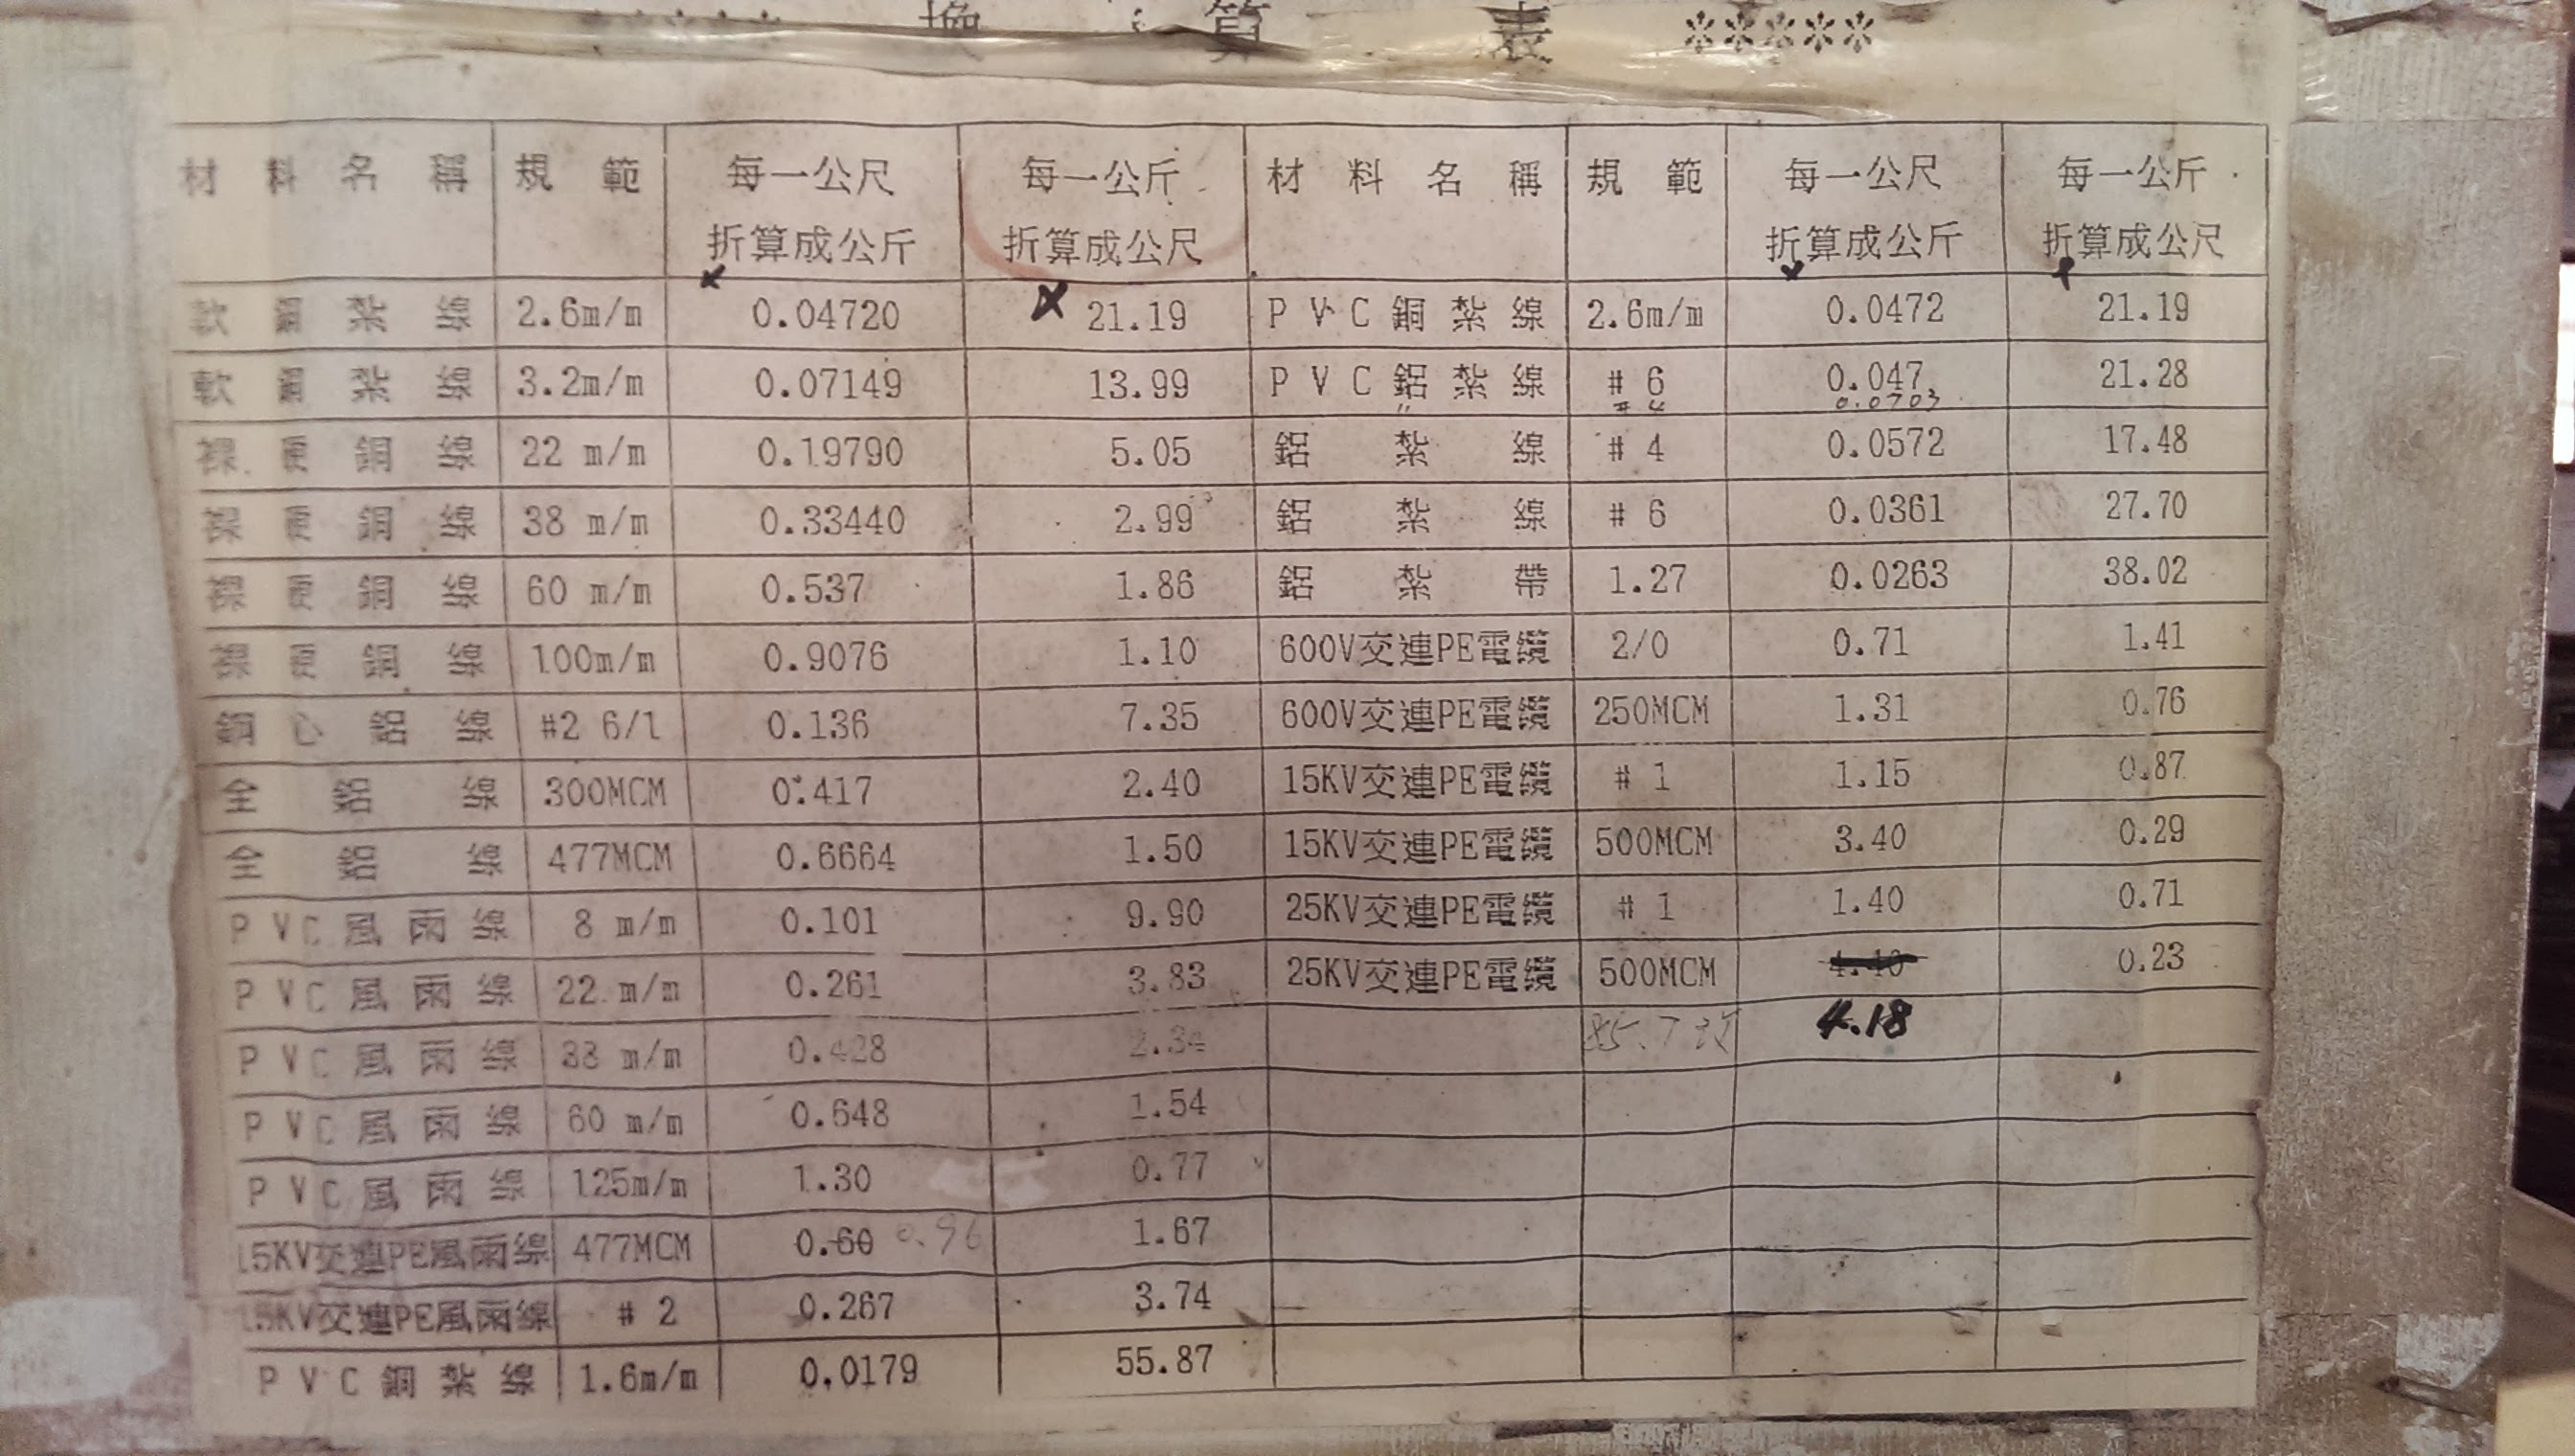 換算表 *****
材料名稱 規範 每一公尺 每一公斤 材料名稱 規範 每一公尺 每一公斤
折算成公斤 折算成公尺 折算成公斤 折算成公尺
軟銅紮線 2.6m/m 0.04720 21.19 PVC銅紮線 2.6m/m 0.0472 21.19
軟銅紮線 3.2m/m 0.07149 13.99 PVC鋁紮線 #6 0.047 21.28
" #4 0.0703
裸硬銅線 22 m/m 0.19790 5.05 鋁紮線 #4 0.0572 17.48
裸硬銅線 38 m/m 0.33440 2.99 鋁紮線 #6 0.0361 27.70
裸硬銅線 60 m/m 0.537 1.86 鋁紮帶 1.27 0.0263 38.02
裸硬銅線 100m/m 0.9076 1.10 600V交連PE電纜 2/0 0.71 1.41
鋼心鋁線 #2 6/1 0.136 7.35 600V交連PE電纜 250MCM 1.31 0.76
全鋁線 300MCM 0.417 2.40 15KV交連PE電纜 #1 1.15 0.87
全鋁線 477MCM 0.6664 1.50 15KV交連PE電纜 500MCM 3.40 0.29
PVC風雨線 8 m/m 0.101 9.90 25KV交連PE電纜 #1 1.40 0.71
PVC風雨線 22 m/m 0.261 3.83 25KV交連PE電纜 500MCM 4.40 0.23
PVC風雨線 38 m/m 0.428 2.34 4.18
PVC風雨線 60 m/m 0.648 1.54
PVC風雨線 125m/m 1.30 0.77
15KV交連PE風雨線 477MCM 0.60 0.96 1.67
15KV交連PE風雨線 #2 0.267 3.74
PVC銅紮線 1.6m/m 0.0179 55.87